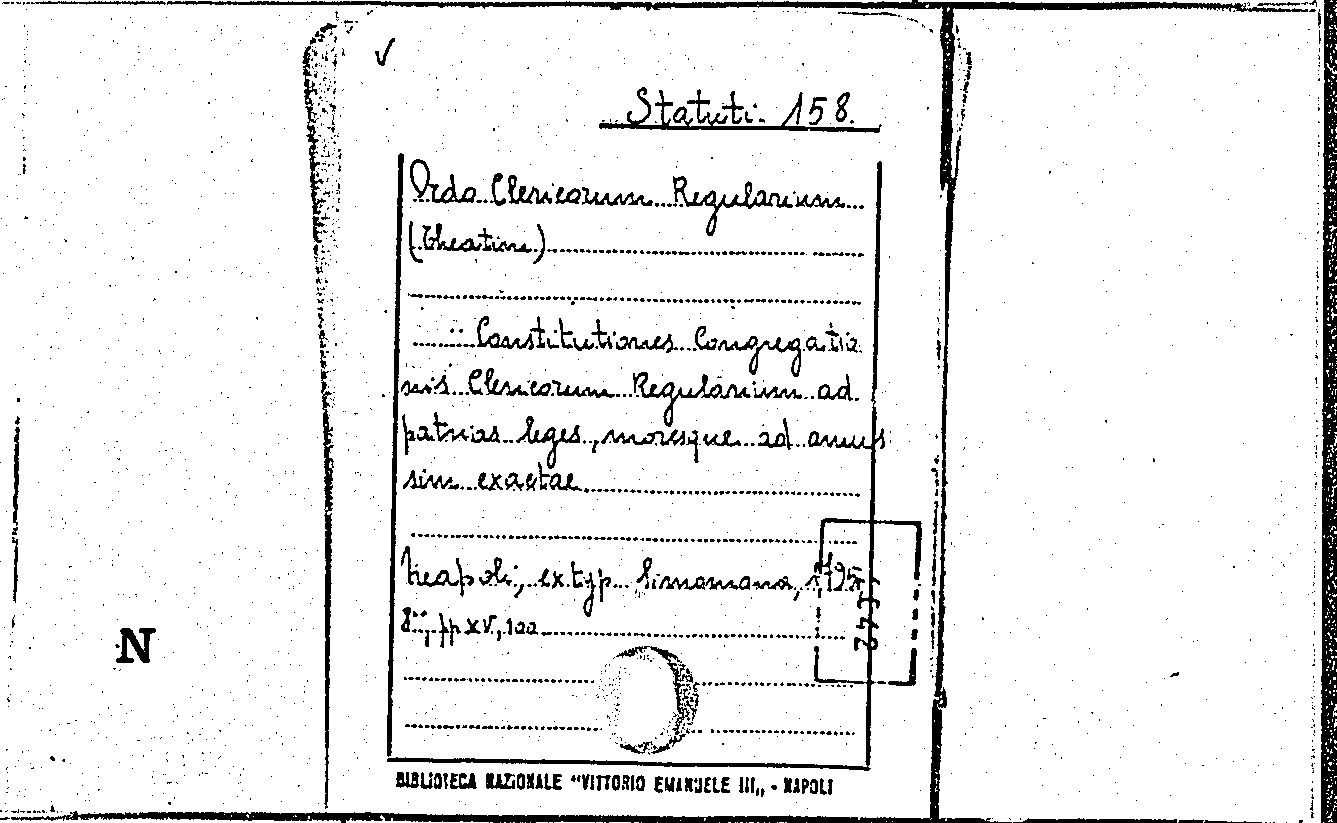 ✓
Statuti. 158.
Ordo Clericorum Regularium
(Theatini)
Constitutiones Congregatio
nis Clericorum Regularium ad
patrias leges, moresque ad amus
sim exactae
Neapoli, ex typ. Simoniana, 1795
8°, pp XV, 100
N
BIBLIOTECA NAZIONALE "VITTORIO EMANUELE III„ - NAPOLI